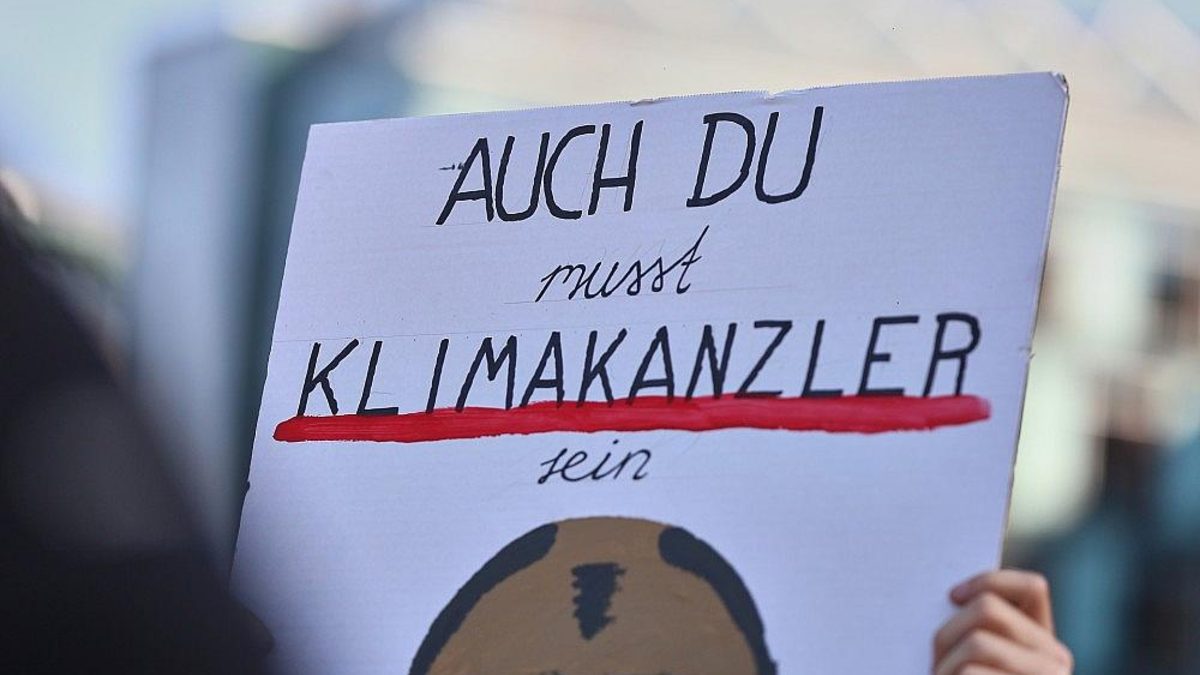 AUCH DU
musst
KLIMAKANZLER
sein